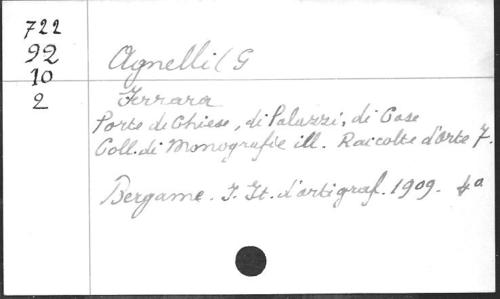 722
92
10
2
Agnelli (G
Ferrara
Porte di Chiese, di Palazzi, di Case
Coll. di Monografie ill. Raccolte d'Arte 7.
Bergame. I. It. d'arti graf. 1909. 4º